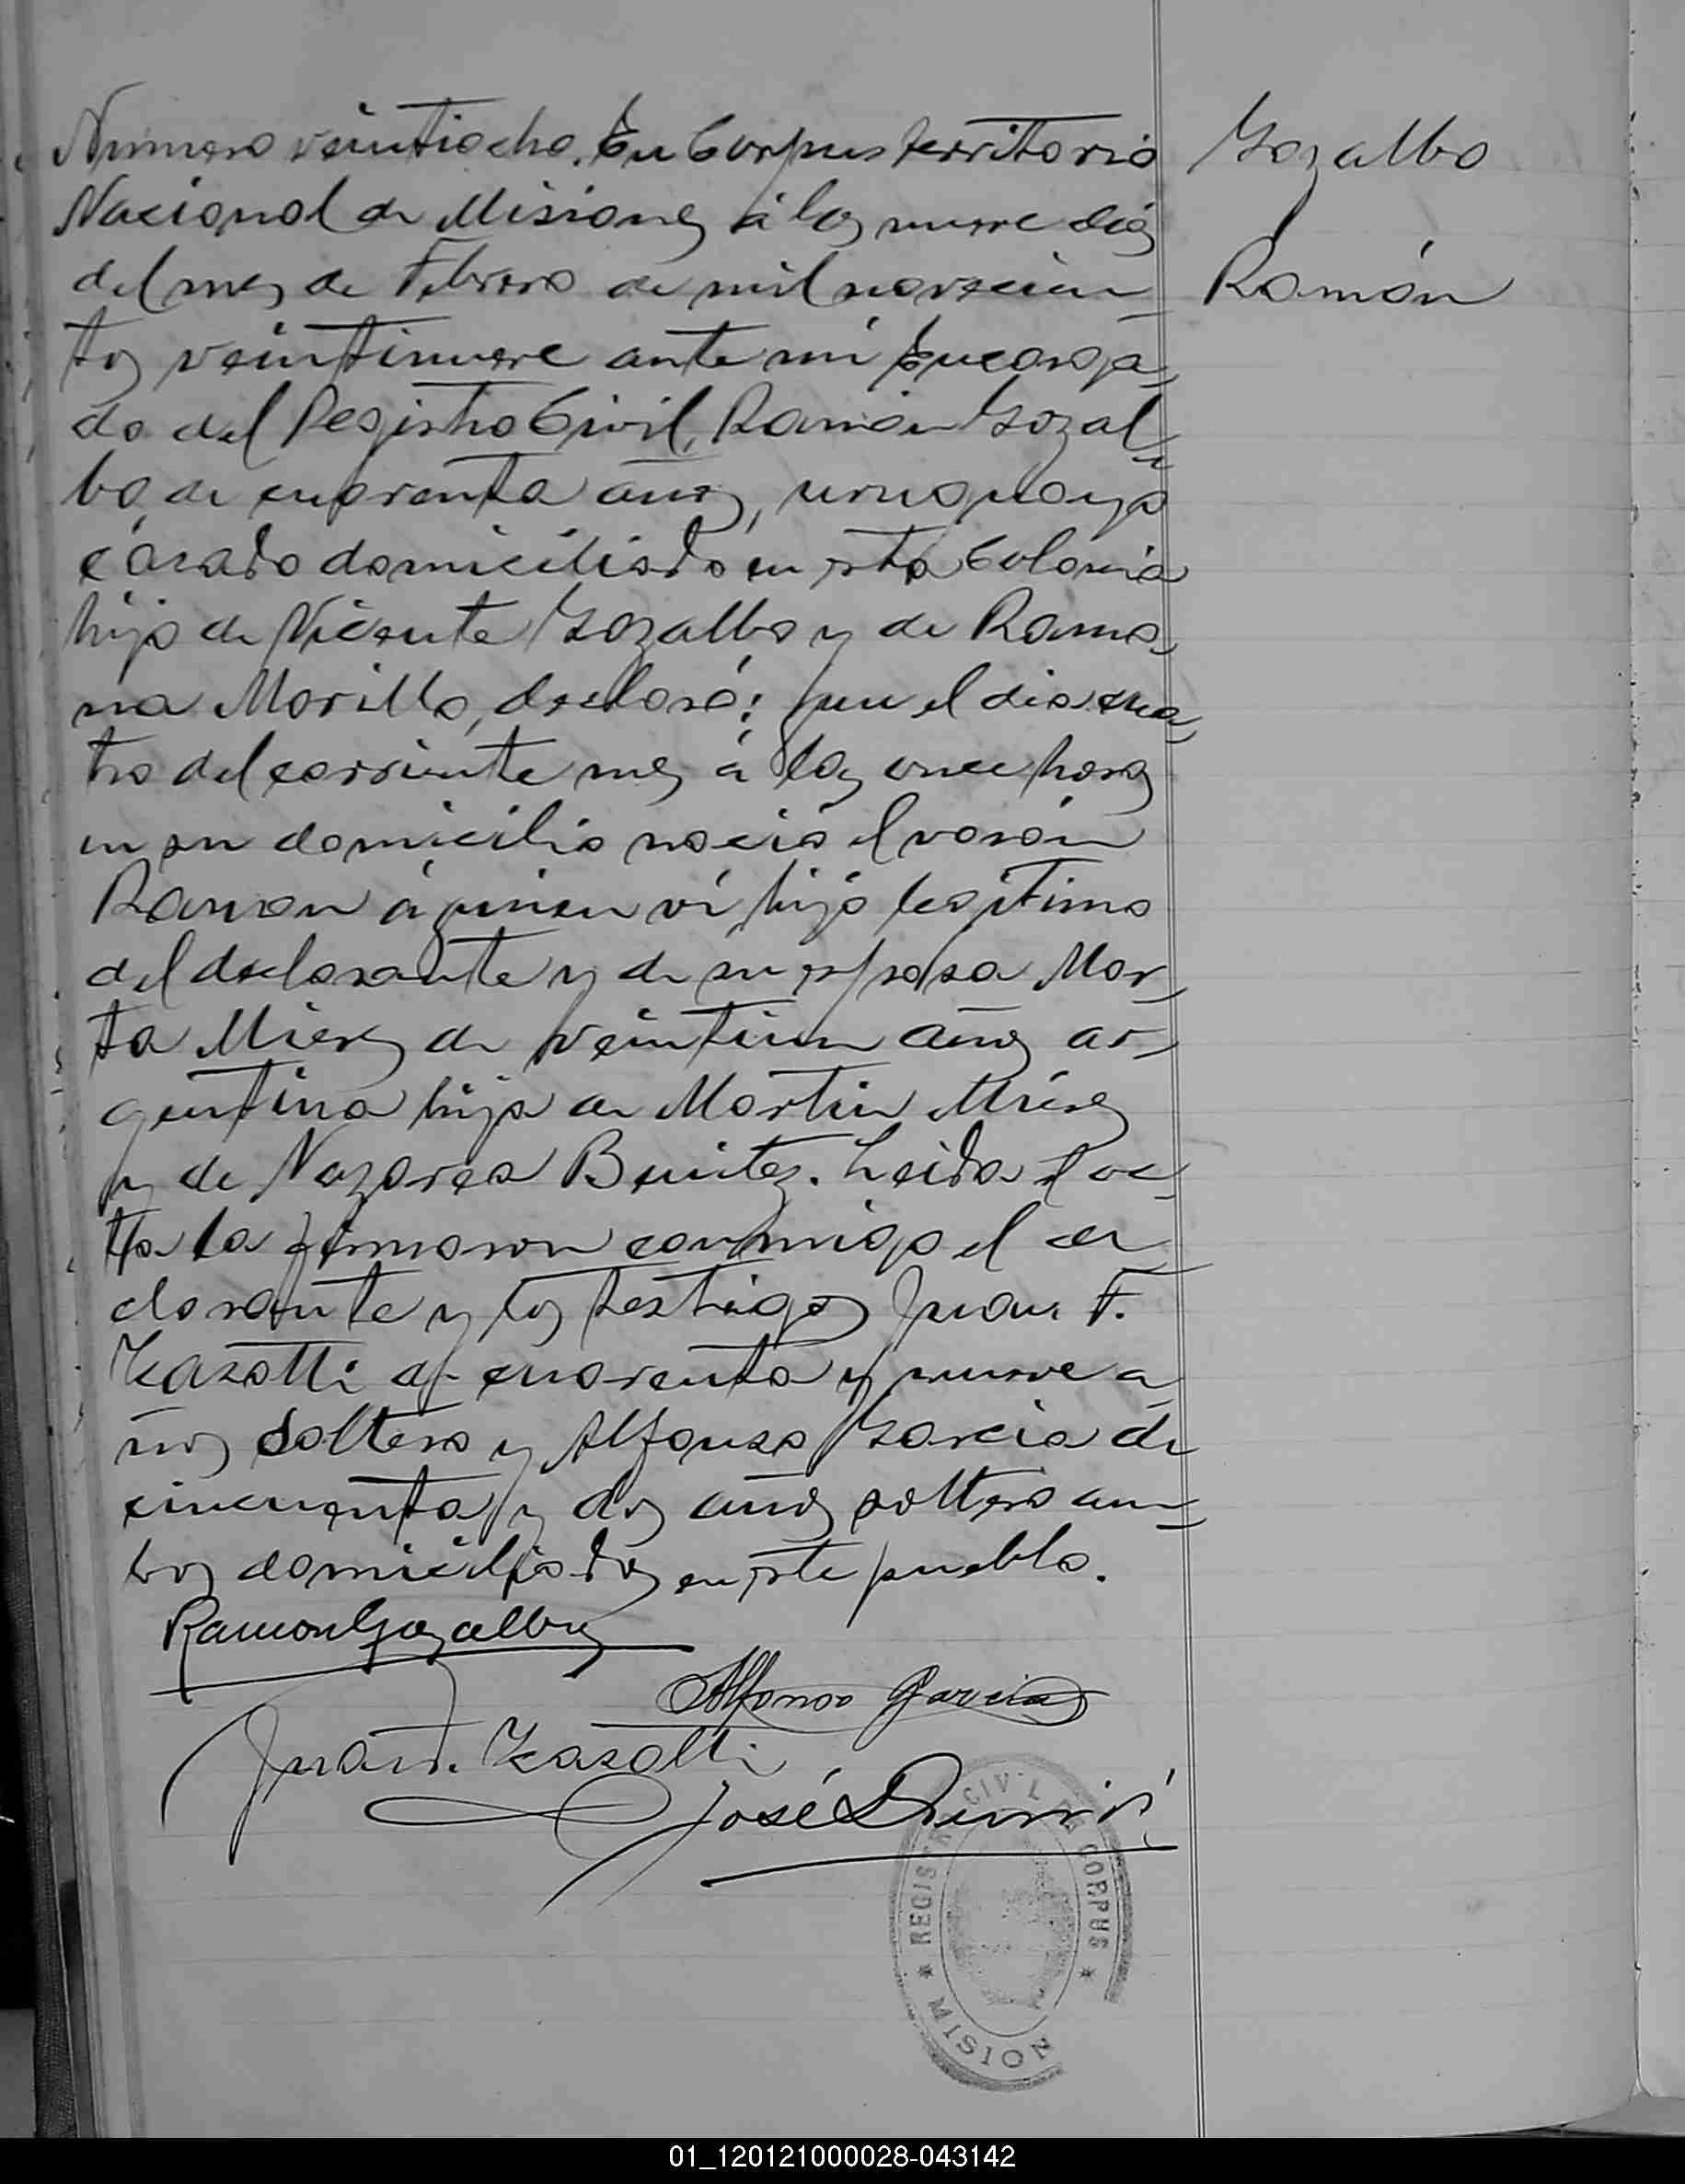 Numero veintiocho. En Corpus territorio
Nacional de Misiones á los nueve dias
del mes de Febrero de mil novecien
tos veintinueve ante mi Encarga
do del Registro Civil, Ramón Gozal
bo, de cuarenta años, uruguayo
casado domiciliado en esta Colonia
hijo de Vicente Gozalbo y de Ramo
na Morillo, declaró: que el dia cua
tro del corriente mes á las once horas
en su domicilio nació el varón
Ramon á quien ví hijo legítimo
del declarante y de su esposa Mar
ta Mieres de veintiun años ar
gentina hija de Martin Míeres
y de Nazarea Benitez. Leida el ac
ta la firmaron conmigo el de
clarante y los testigos Juan F.
de cuarenta y nueve a
ños soltero y Alfonso Garcia de
cincuenta y dos años soltero am
bos domiciliados en este pueblo.
Ramon Gozalbo
Alfonso Garcia
Juan F.
José
Gozalbo
Ramón
REGISTRO CIVIL DE CORPUS
MISION
01_120121000028-043142